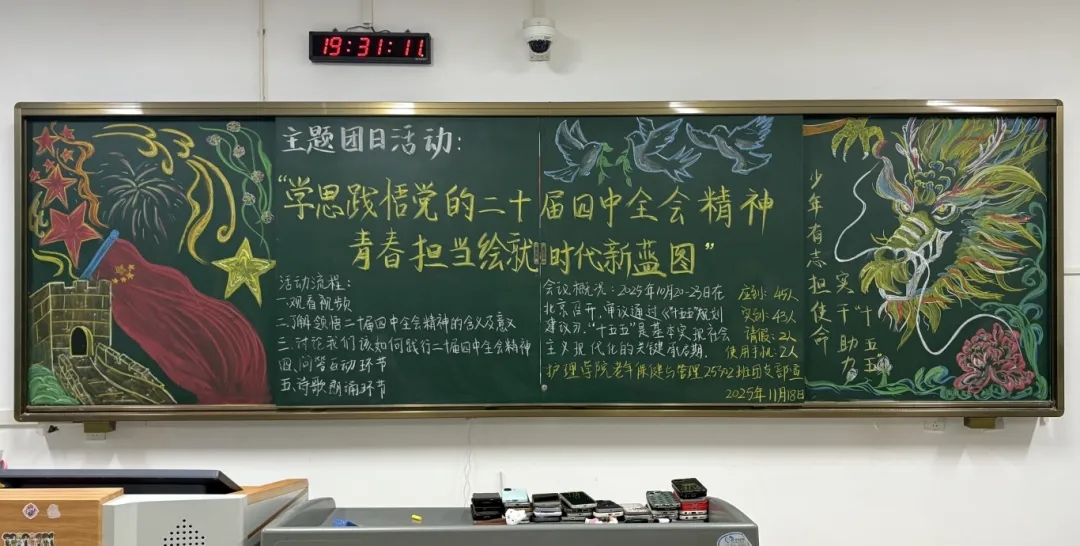 19:31:11
主题团日活动:
“学思践悟党的二十届四中全会精神
青春担当绘就时代新蓝图”
活动流程:
一.观看视频
二.了解领悟二十届四中全会精神的含义及意义
三.讨论我们该如何践行二十届四中全会精神
四.问答互动环节
五.诗歌朗诵环节
会议概况:2025年10月20-23日在
北京召开,审议通过《十五五》规划
建议》.“十五五”是基本实现社会
主义现代化的关键承启期.
应到:45人
实到:43人
请假:2人
使用手机:2人
护理学院老年保健与管理25502班团支部宣
2025年11月18日
少年有志担使命
实干助力
“十五五”